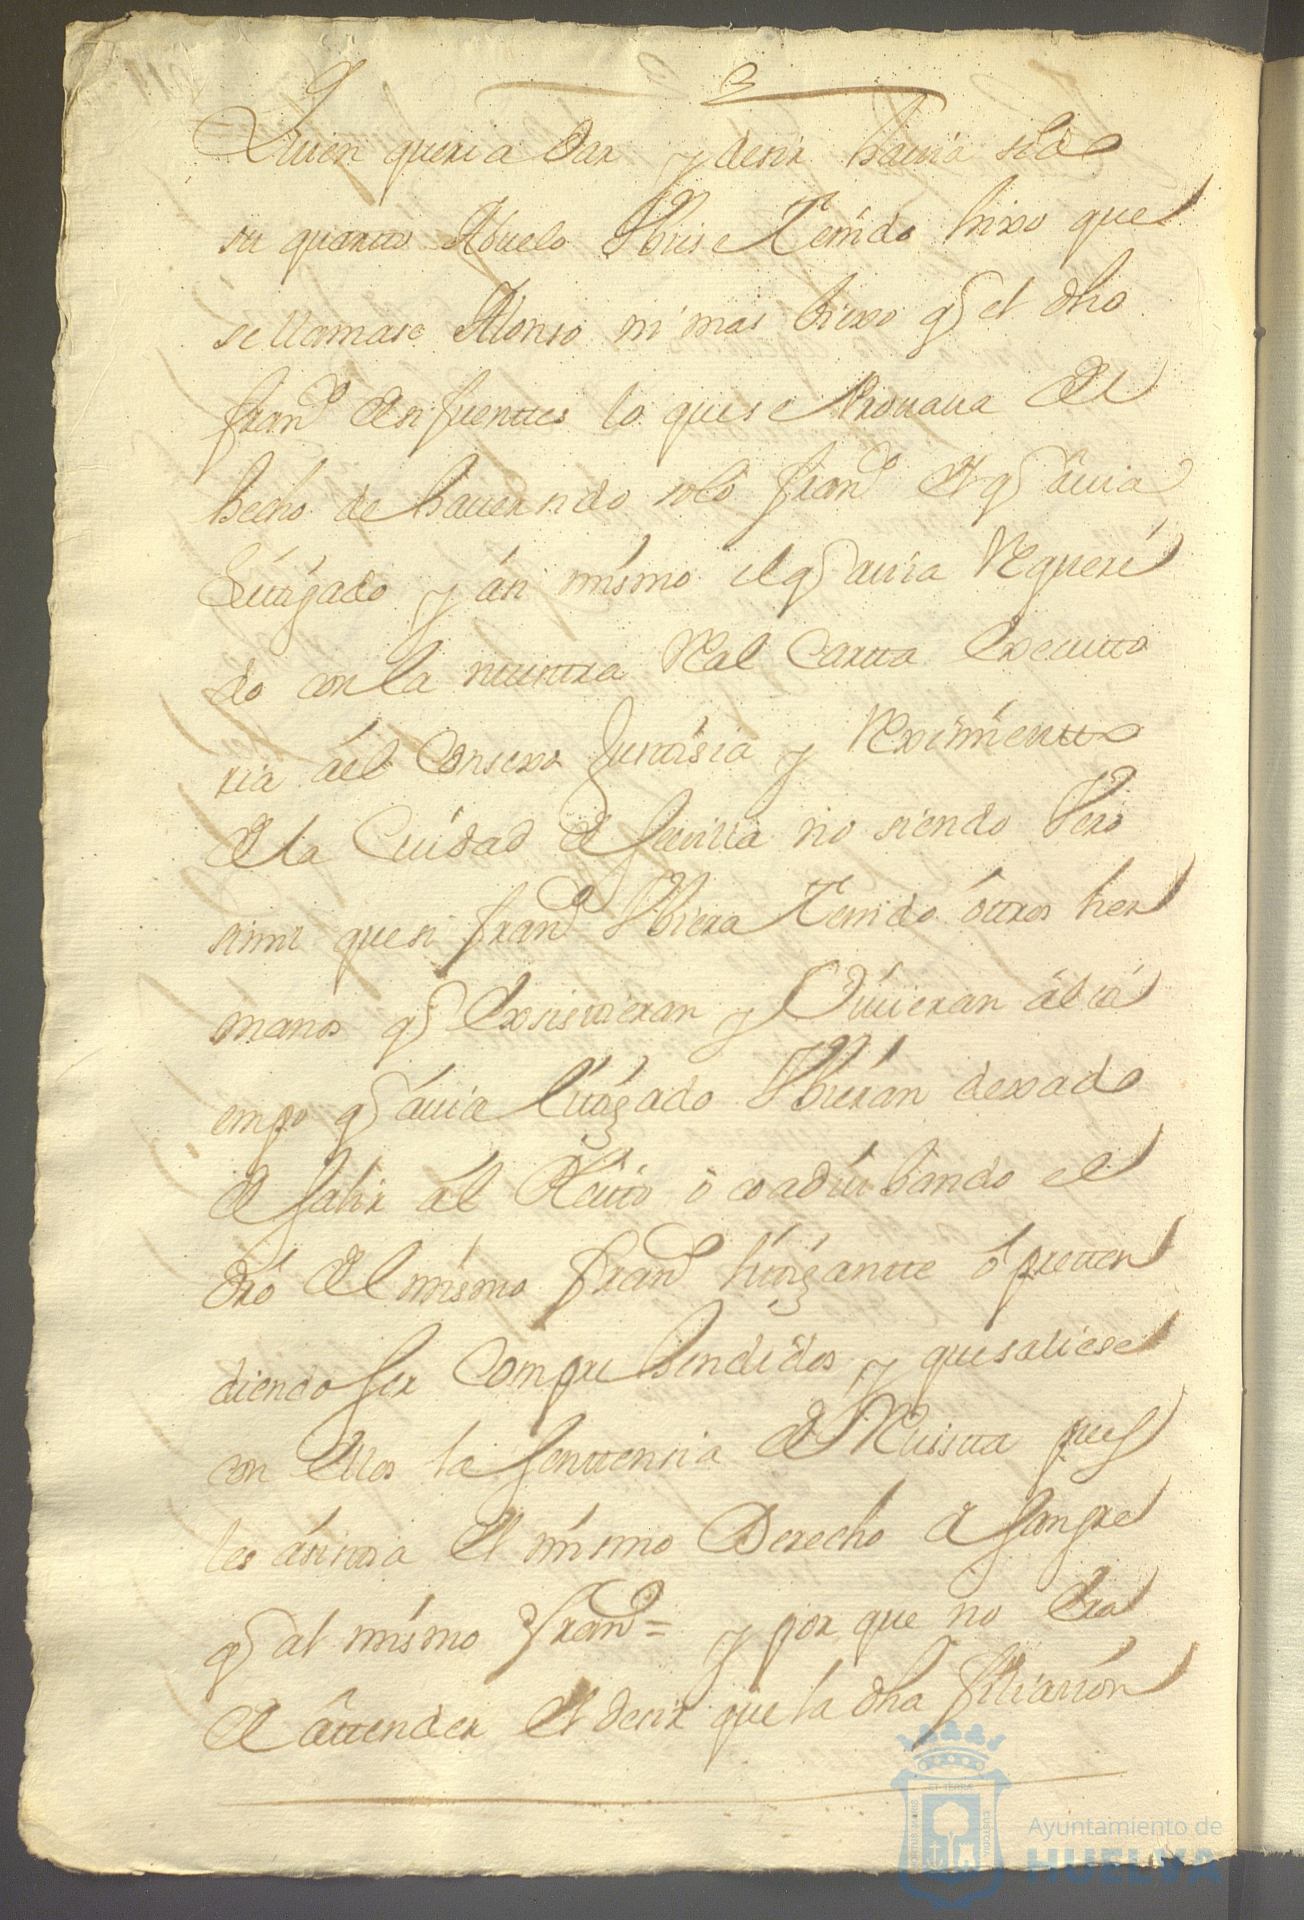 Quien queria dar y desir havia sido
su quartto Abuelo Vbiese Tenido hixo que
se llamase Alonso ni mas hixo q el dho
Fran.co de fuenttes lo que se Prouaua del
hecho de hauer sido solo Fran.co el q âuia
Littigado y ási mismo el q auia Requeri
do con la nuestra Real Cartta Executto
ria ál Consexo Justisia y Reximientto
de la Ciudad de Seuilla no siendo Vero
simil que si Fran.co Vbiera Tenido ôttros her
manos q Exsistieran y Viuieran al ti
empo q áuia Littigado Vbierán dexado
de salir ál Pleitto ô coadiubando el
dró del mismo Fran.co littigantte ô pretten
diendo ser Comprehendidos y que saliese
con Ellos la Senttensia de Reuistta pues
les ásistia el mismo Derecho de Sangre
q al mismo Fran.co = y por que no Era
de âttender el desir que la dha filiasión
Ayuntamiento de
HUELVA